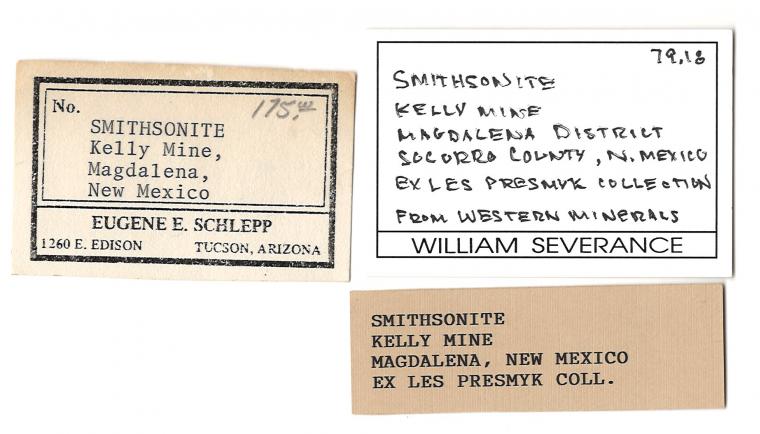 No. 175.00
SMITHSONITE
Kelly Mine,
Magdalena,
New Mexico
EUGENE E. SCHLEPP
1260 E. EDISON TUCSON, ARIZONA
79.18
SMITHSONITE
KELLY MINE
MAGDALENA DISTRICT
SOCORRO COUNTY, N. MEXICO
EX LES PRESMYK COLLECTION
FROM WESTERN MINERALS
WILLIAM SEVERANCE
SMITHSONITE
KELLY MINE
MAGDALENA, NEW MEXICO
EX LES PRESMYK COLL.